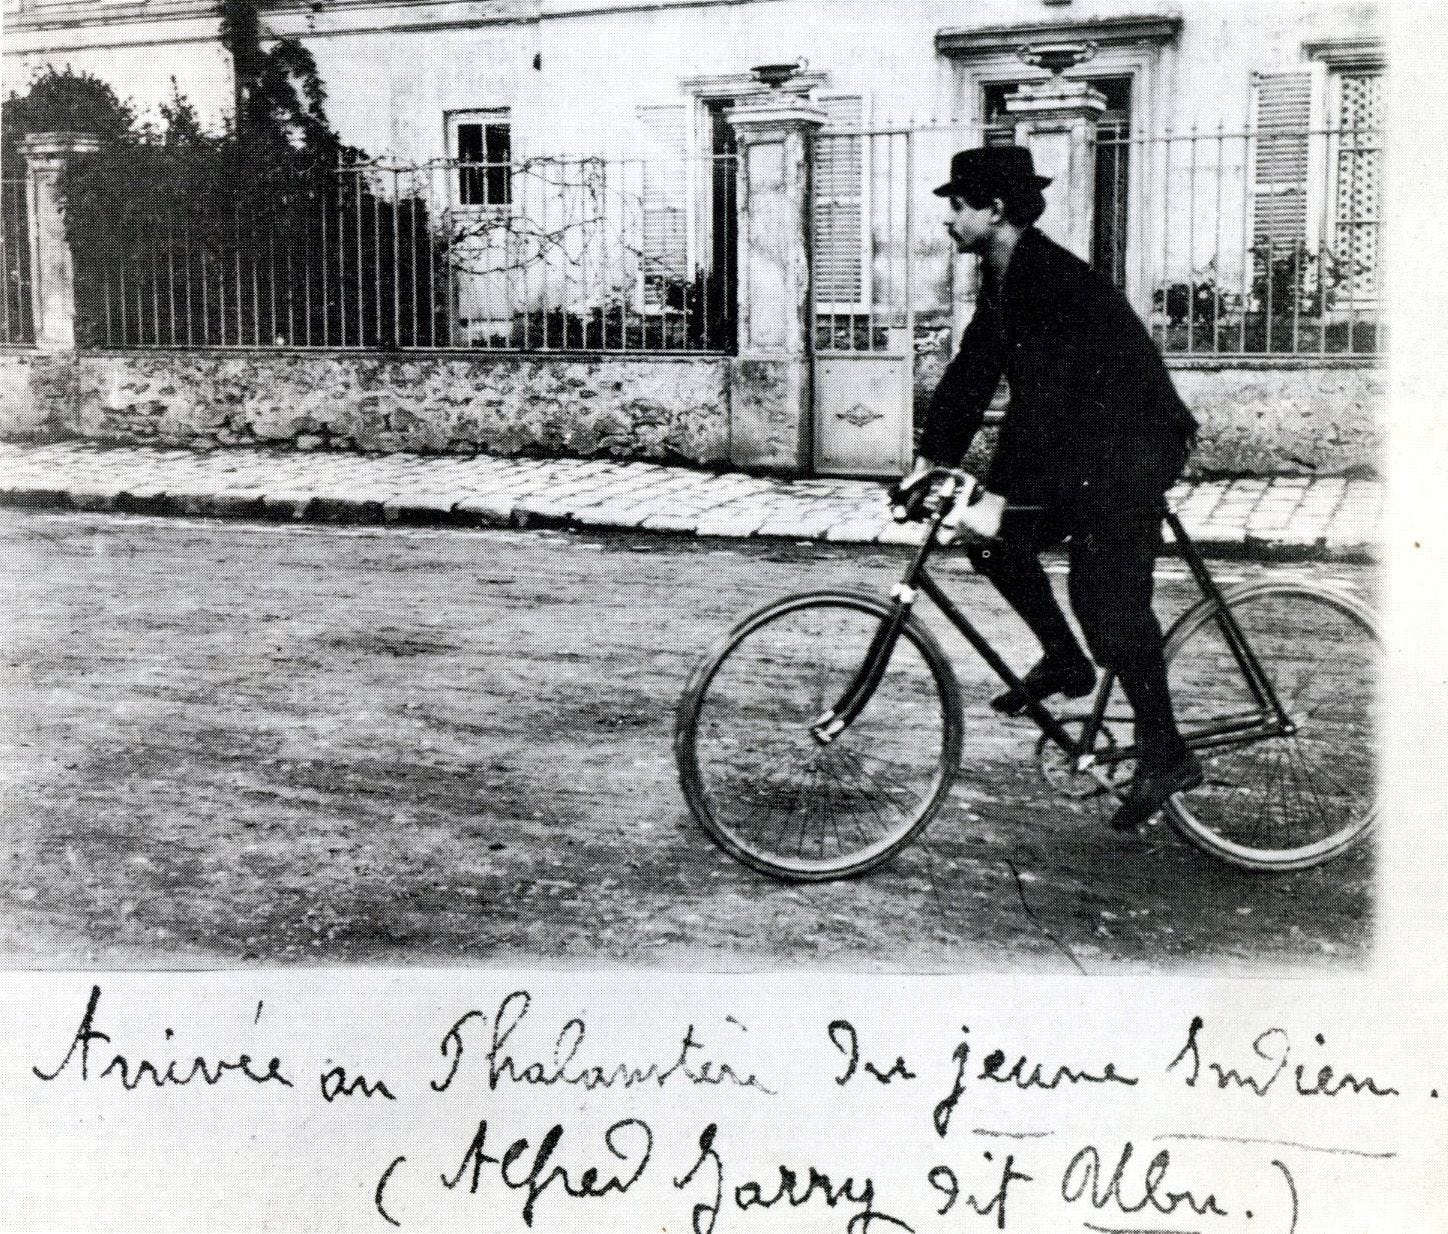 Arrivée au Phalanstère du jeune Indien.
(Alfred Jarry dit Ubu.)